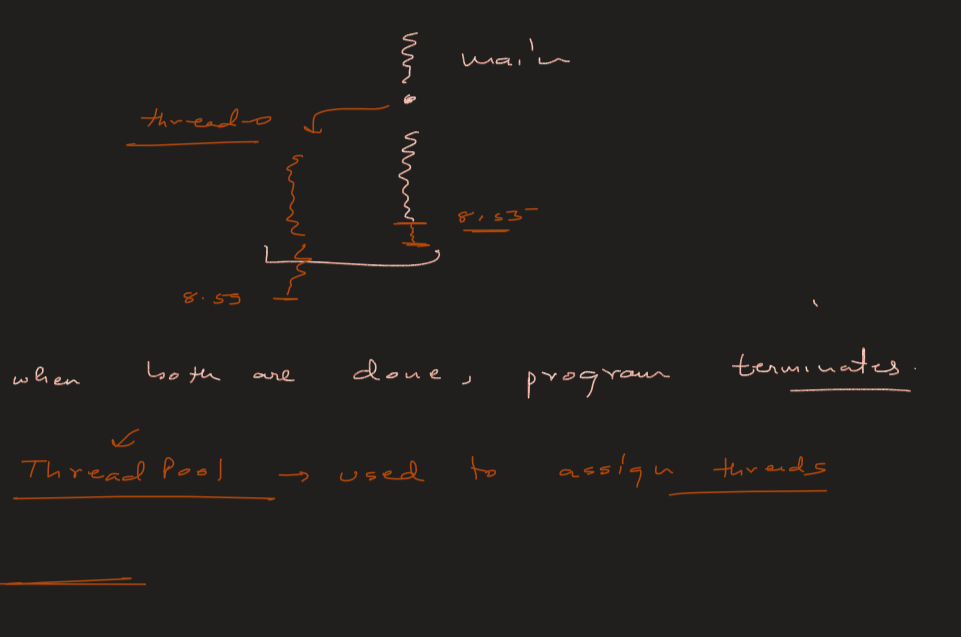 main
thread-0
8.53
8.59
when both are done, program terminates.
ThreadPool → used to assign threads